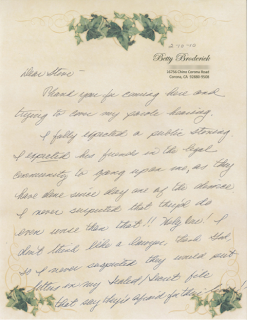 2-10-10
Betty Broderick
16756 Chino Corona Road
Corona, CA 92880-9508
Dear Steve -
Thank you for coming here and
trying to cover my parole hearing.
I fully expected a public stoning
I expected his friends in the legal
community to gang upon me, as they
have done since day one of the divorce
I never suspected that they'd do
even worse than that!! Holy Cow! I
don't think like a lawyer, thank God,
so I never suspected they would put
letters in my Sealed/Secret file
that say they're afraid for their